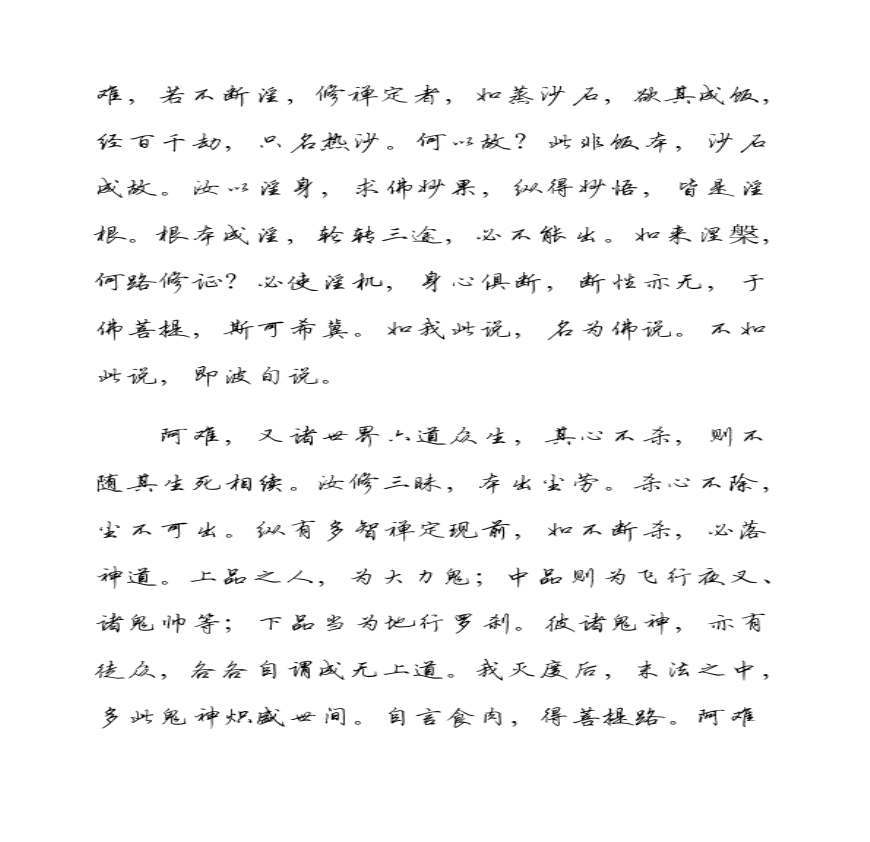 难，若不断淫，修禅定者，如蒸沙石，欲其成饭，
经百千劫，只名热沙。何以故？此非饭本，沙石
成故。汝以淫身，求佛妙果，纵得妙悟，皆是淫
根。根本成淫，轮转三途，必不能出。如来涅槃，
何路修证？必使淫机，身心俱断，断性亦无，于
佛菩提，斯可希冀。如我此说，名为佛说。不如
此说，即波旬说。
阿难，又诸世界六道众生，其心不杀，则不
随其生死相续。汝修三昧，本出尘劳。杀心不除，
尘不可出。纵有多智禅定现前，如不断杀，必落
神道。上品之人，为大力鬼；中品则为飞行夜叉、
诸鬼帅等；下品当为地行罗刹。彼诸鬼神，亦有
徒众，各各自谓成无上道。我灭度后，末法之中，
多此鬼神炽盛世间。自言食肉，得菩提路。阿难